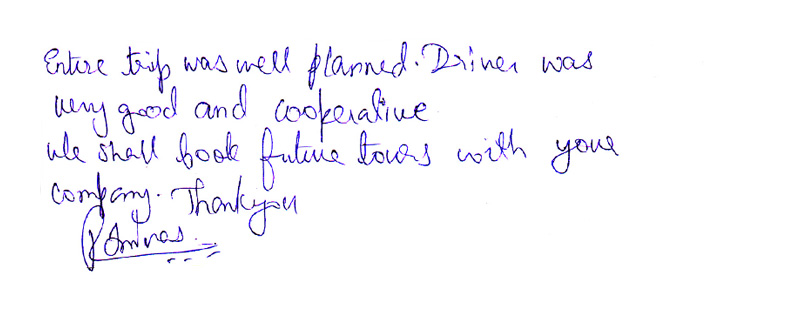 Entire trip was well planned. Driver was
very good and cooperative
we shall book future tours with your
company. Thankyou